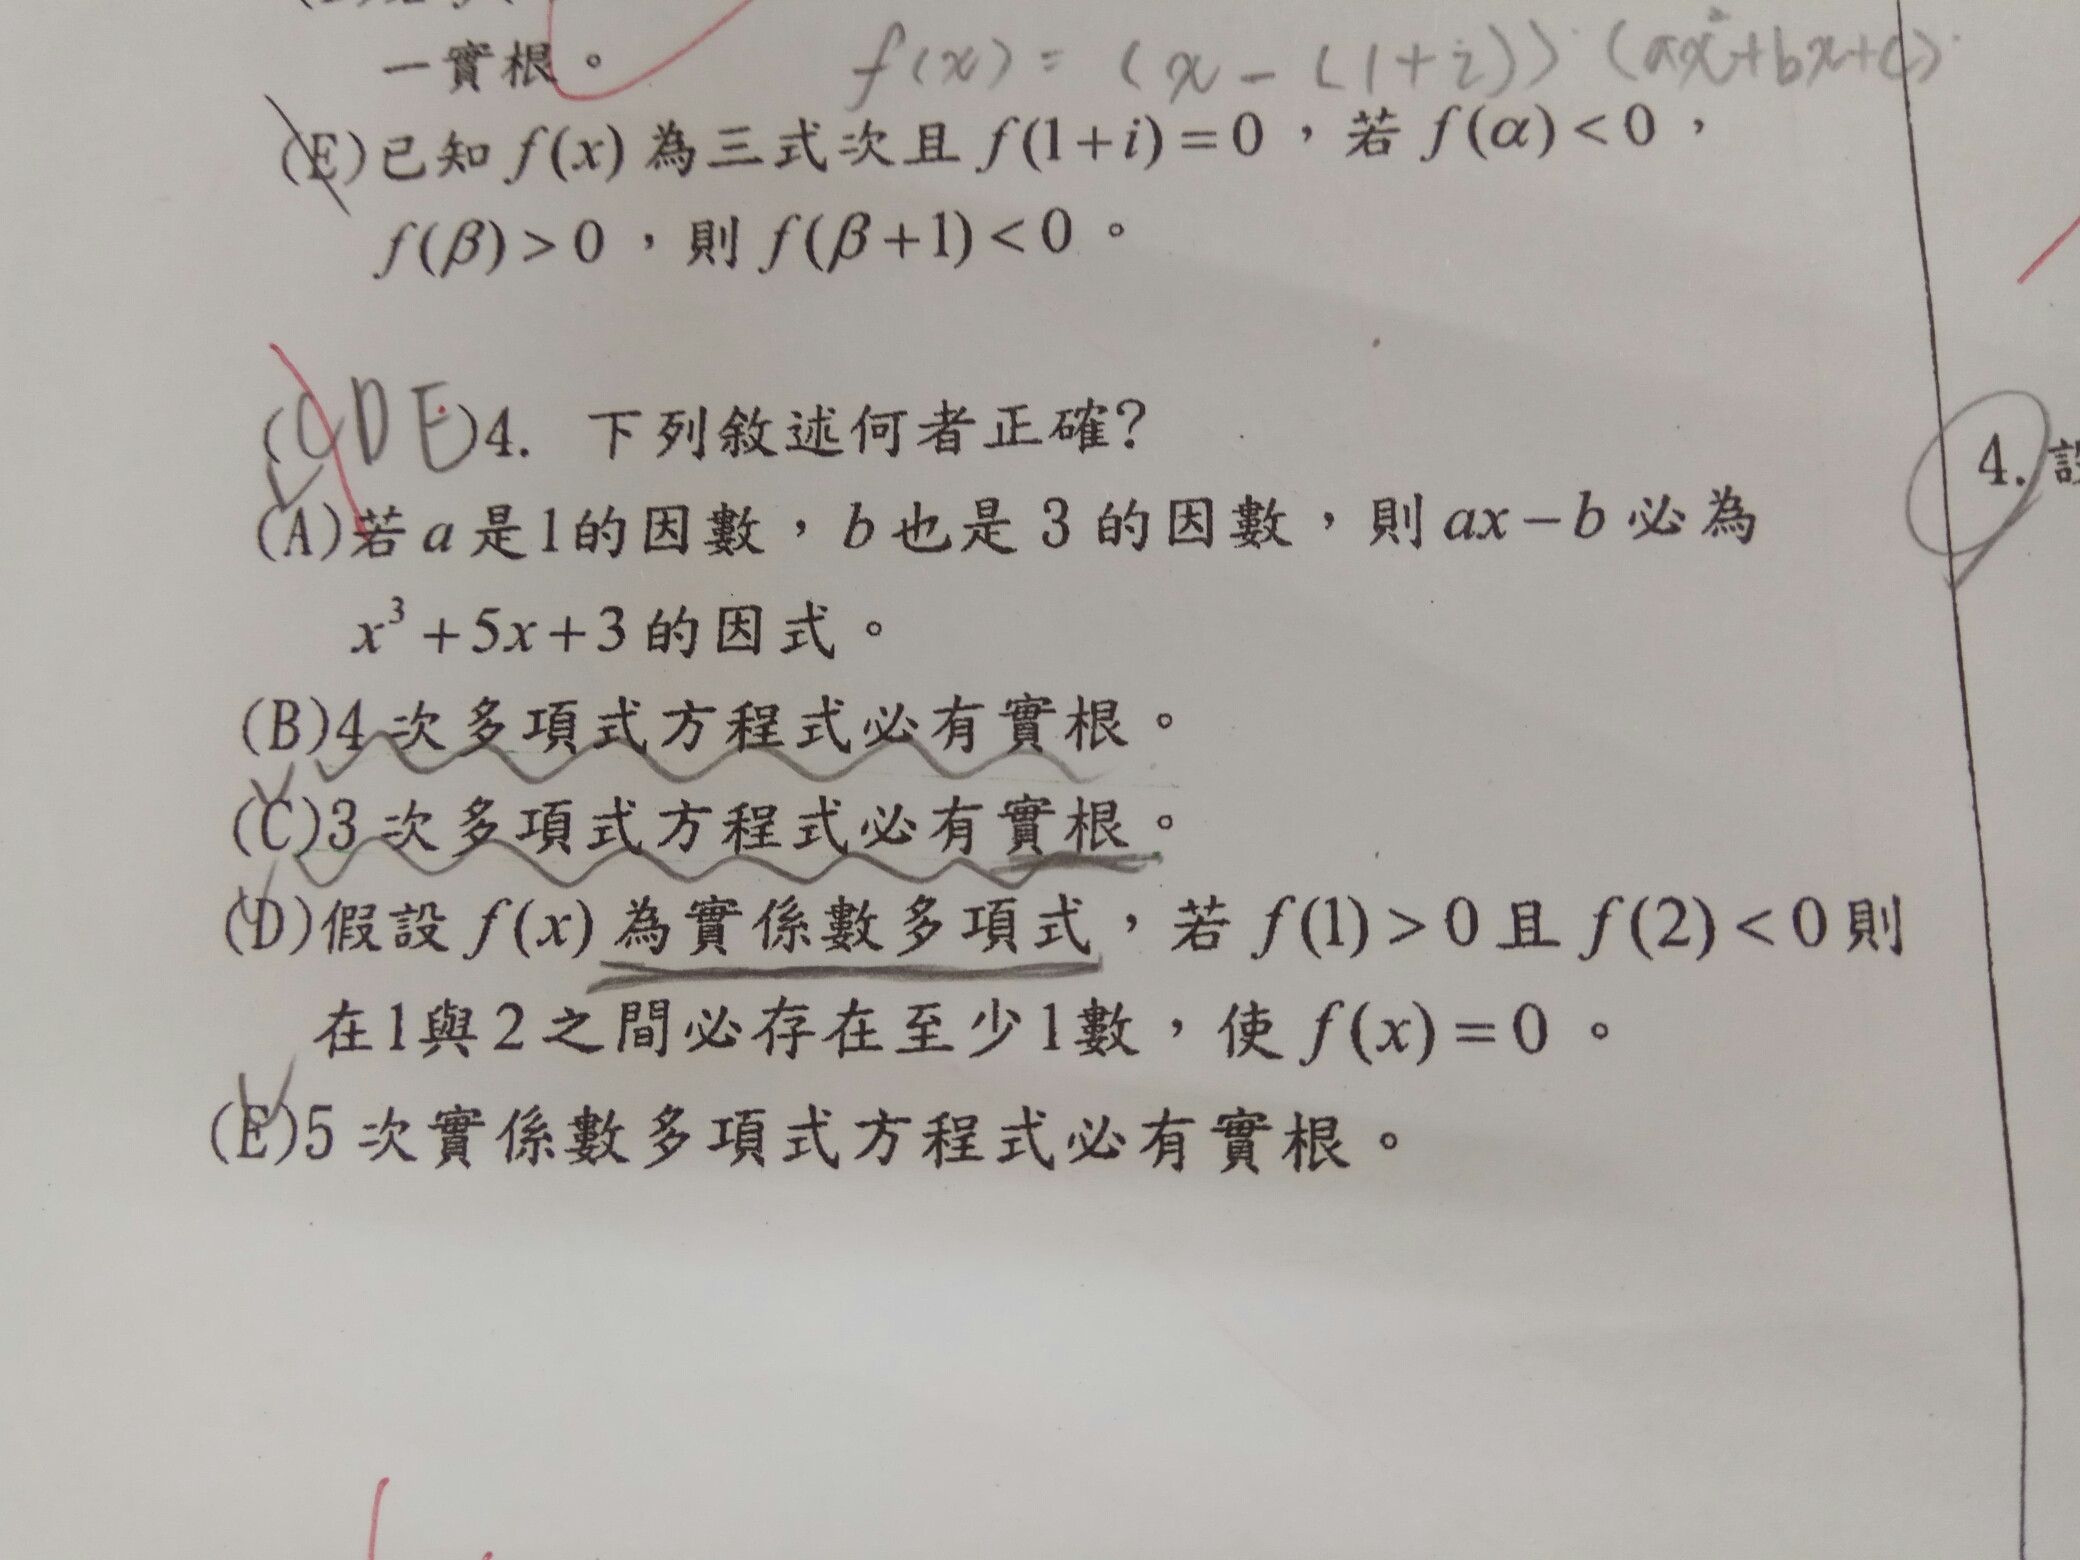 一實根。
f(x) = (x - (1+i)) · (ax²+bx+c)
(E)已知 f(x) 為三式次且 f(1+i)=0，若 f(α)<0，
f(β)>0，則 f(β+1)<0。
(CDE)4. 下列敘述何者正確?
(A)若 a 是1的因數，b 也是 3 的因數，則 ax-b 必為
x³+5x+3 的因式。
(B)4 次多項式方程式必有實根。
(C)3 次多項式方程式必有實根。
(D)假設 f(x) 為實係數多項式，若 f(1)>0 且 f(2)<0 則
在1與2之間必存在至少1數，使 f(x)=0。
(E)5 次實係數多項式方程式必有實根。
4.